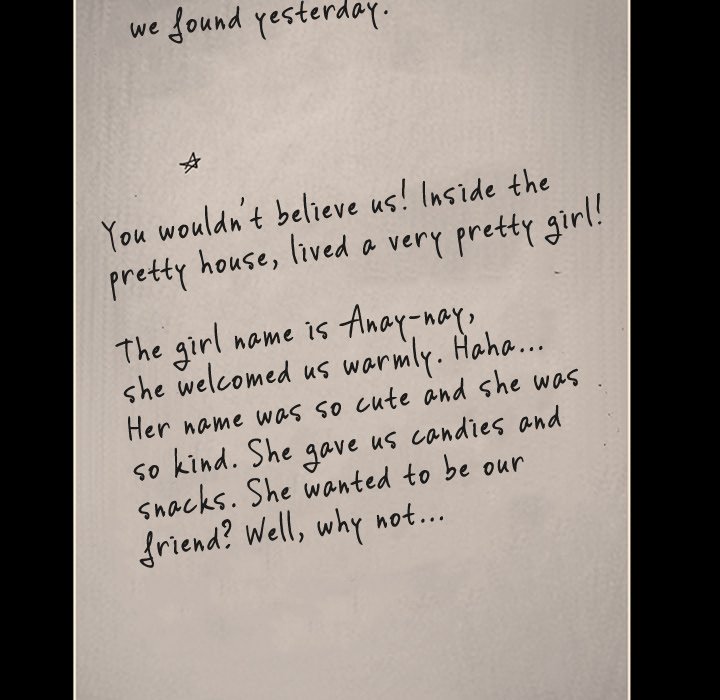 we found yesterday.
You wouldn't believe us! Inside the
pretty house, lived a very pretty girl!
The girl name is Anay-nay,
she welcomed us warmly. Haha...
Her name was so cute and she was
so kind. She gave us candies and
snacks. She wanted to be our
friend? Well, why not...